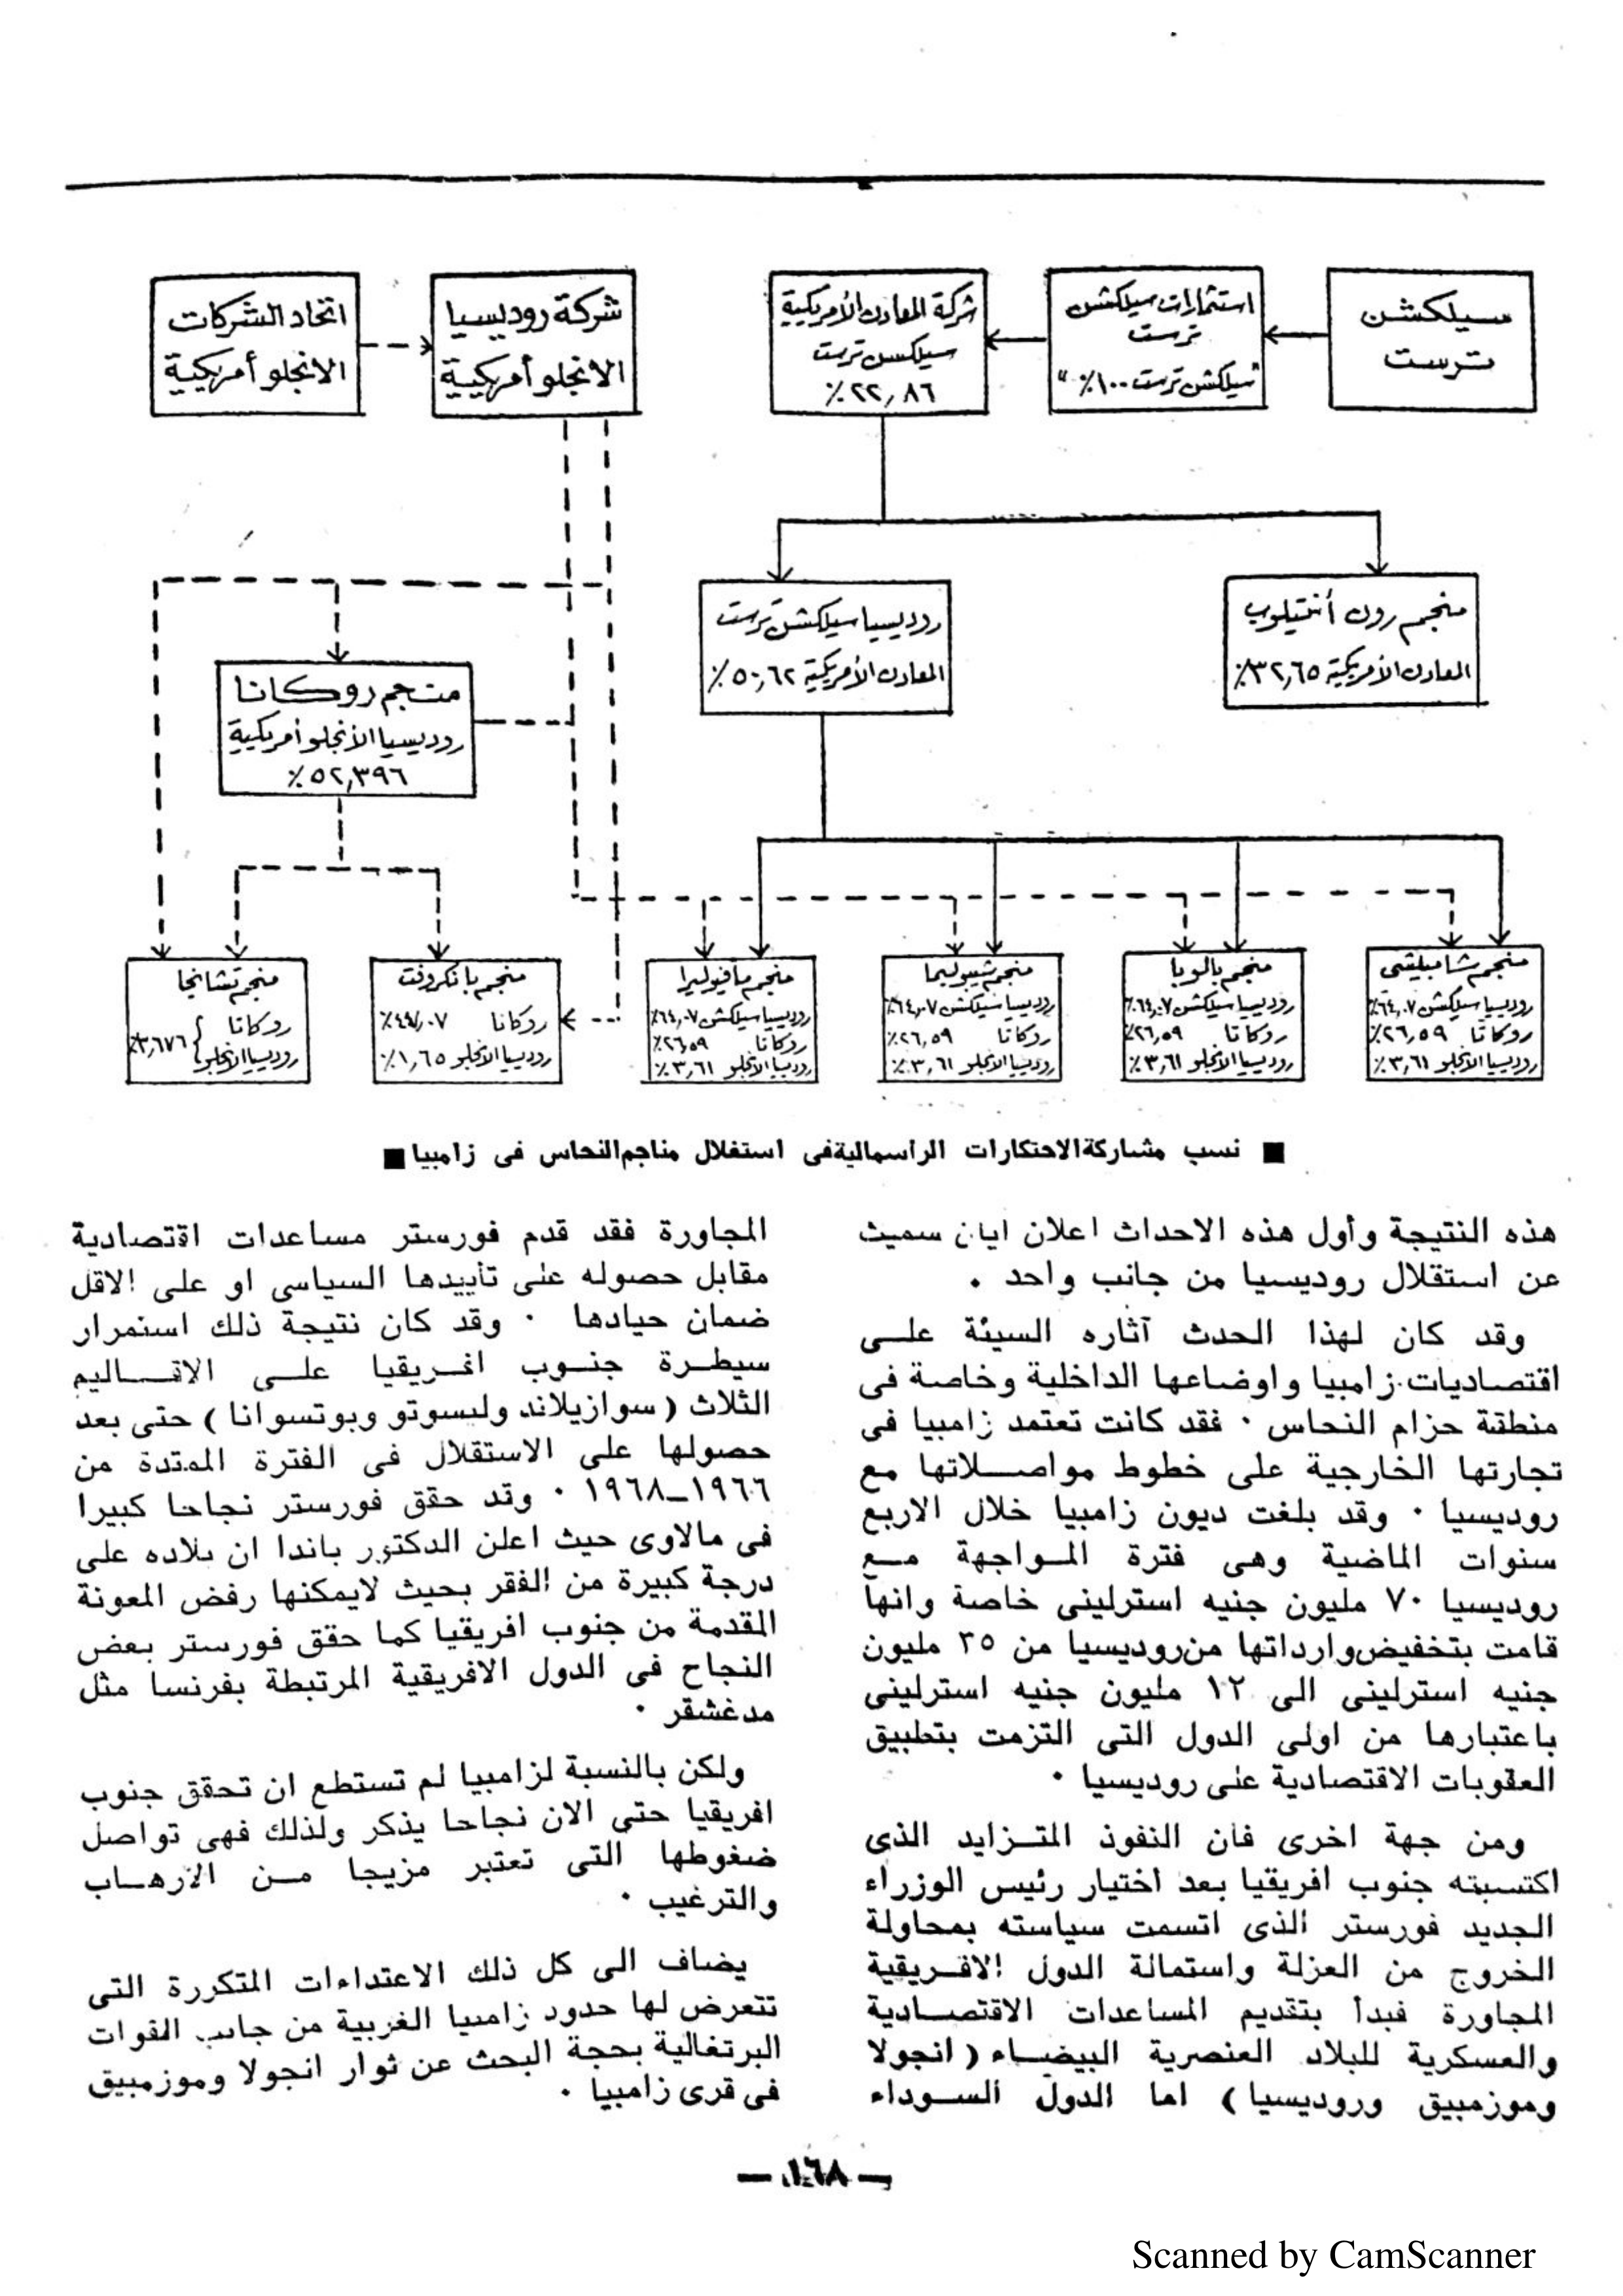 سيلكشن
ترست
استثمارات سيلكشن
ترست
"سيلكشن ترست ١٠٠٪"
شركة المعادن الأمريكية
سيلكسن ترست
٢٢,٨٦٪
شركة روديسيا
الانجلو أمريكية
اتحاد الشركات
الانجلو أمريكية
منجم رون أنتيلوب
المعادن الأمريكية ٣٢,٦٥٪
روديسيا سيلكشن ترست
المعادن الأمريكية ٥٠,٦٢٪
منجم روكانا
روديسيا الأنجلو أمريكية
٥٢,٣٩٦٪
منجم شامبليشى
روديسيا سيلكشن ٦٤,٠٧٪
روكانا ٢٦,٥٩٪
روديسيا الانجلو ٣,٦١٪
منجم بالوبا
روديسيا سيلكشن ٦٤,٠٧٪
روكانا ٢٦,٥٩٪
روديسيا الانجلو ٣,٦١٪
منجم شيبوليما
روديسيا سيلكشن ٦٤,٠٧٪
روكانا ٢٦,٥٩٪
روديسيا الانجلو ٣,٦١٪
منجم مافيوليرا
روديسيا سيلكشن ٦٤,٠٧٪
روكانا ٢٦,٥٩٪
روديسيا الانجلو ٣,٦١٪
منجم بانكروفت
روكانا
روديسيا الانجلو ١,٦٥٪
منجم تشانجا
روكانا
روديسيا الانجلو
■ نسب مشاركة الاحتكارات الراسمالية فى استغلال مناجم النحاس فى زامبيا ■
هذه النتيجة وأول هذه الاحداث اعلان ايان سميث
عن استقلال روديسيا من جانب واحد .
وقد كان لهذا الحدث آثاره السيئة على
اقتصاديات زامبيا واوضاعها الداخلية وخاصة فى
منطقة حزام النحاس . فقد كانت تعتمد زامبيا فى
تجارتها الخارجية على خطوط مواصلاتها مع
روديسيا . وقد بلغت ديون زامبيا خلال الاربع
سنوات الماضية وهى فترة المواجهة مع
روديسيا ٧٠ مليون جنيه استرلينى خاصة وانها
قامت بتخفيض وارداتها من روديسيا من ٣٥ مليون
جنيه استرلينى الى ١٢ مليون جنيه استرلينى
باعتبارها من اولى الدول التى التزمت بتطبيق
العقوبات الاقتصادية على روديسيا .
ومن جهة اخرى فان النفوذ المتزايد الذى
اكتسبته جنوب افريقيا بعد اختيار رئيس الوزراء
الجديد فورستر الذى اتسمت سياسته بمحاولة
الخروج من العزلة واستمالة الدول الافريقية
المجاورة فبدأ بتقديم المساعدات الاقتصادية
والعسكرية للبلاد العنصرية البيضاء ( انجولا
وموزمبيق وروديسيا ) اما الدول السوداء
المجاورة فقد قدم فورستر مساعدات اقتصادية
مقابل حصوله على تأييدها السياسى او على الاقل
ضمان حيادها . وقد كان نتيجة ذلك استمرار
سيطرة جنوب افريقيا على الاقاليم
الثلاث ( سوازيلاند وليسوتو وبوتسوانا ) حتى بعد
حصولها على الاستقلال فى الفترة الممتدة من
١٩٦٦–١٩٦٨ . وقد حقق فورستر نجاحا كبيرا
فى مالاوى حيث اعلن الدكتور باندا ان بلاده على
درجة كبيرة من الفقر بحيث لايمكنها رفض المعونة
المقدمة من جنوب افريقيا كما حقق فورستر بعض
النجاح فى الدول الافريقية المرتبطة بفرنسا مثل
مدغشقر .
ولكن بالنسبة لزامبيا لم تستطع ان تحقق جنوب
افريقيا حتى الان نجاحا يذكر ولذلك فهى تواصل
ضغوطها التى تعتبر مزيجا من الارهاب
والترغيب .
يضاف الى كل ذلك الاعتداءات المتكررة التى
تتعرض لها حدود زامبيا الغربية من جانب القوات
البرتغالية بحجة البحث عن ثوار انجولا وموزمبيق
فى قرى زامبيا .
— ١٦٨ —
Scanned by CamScanner